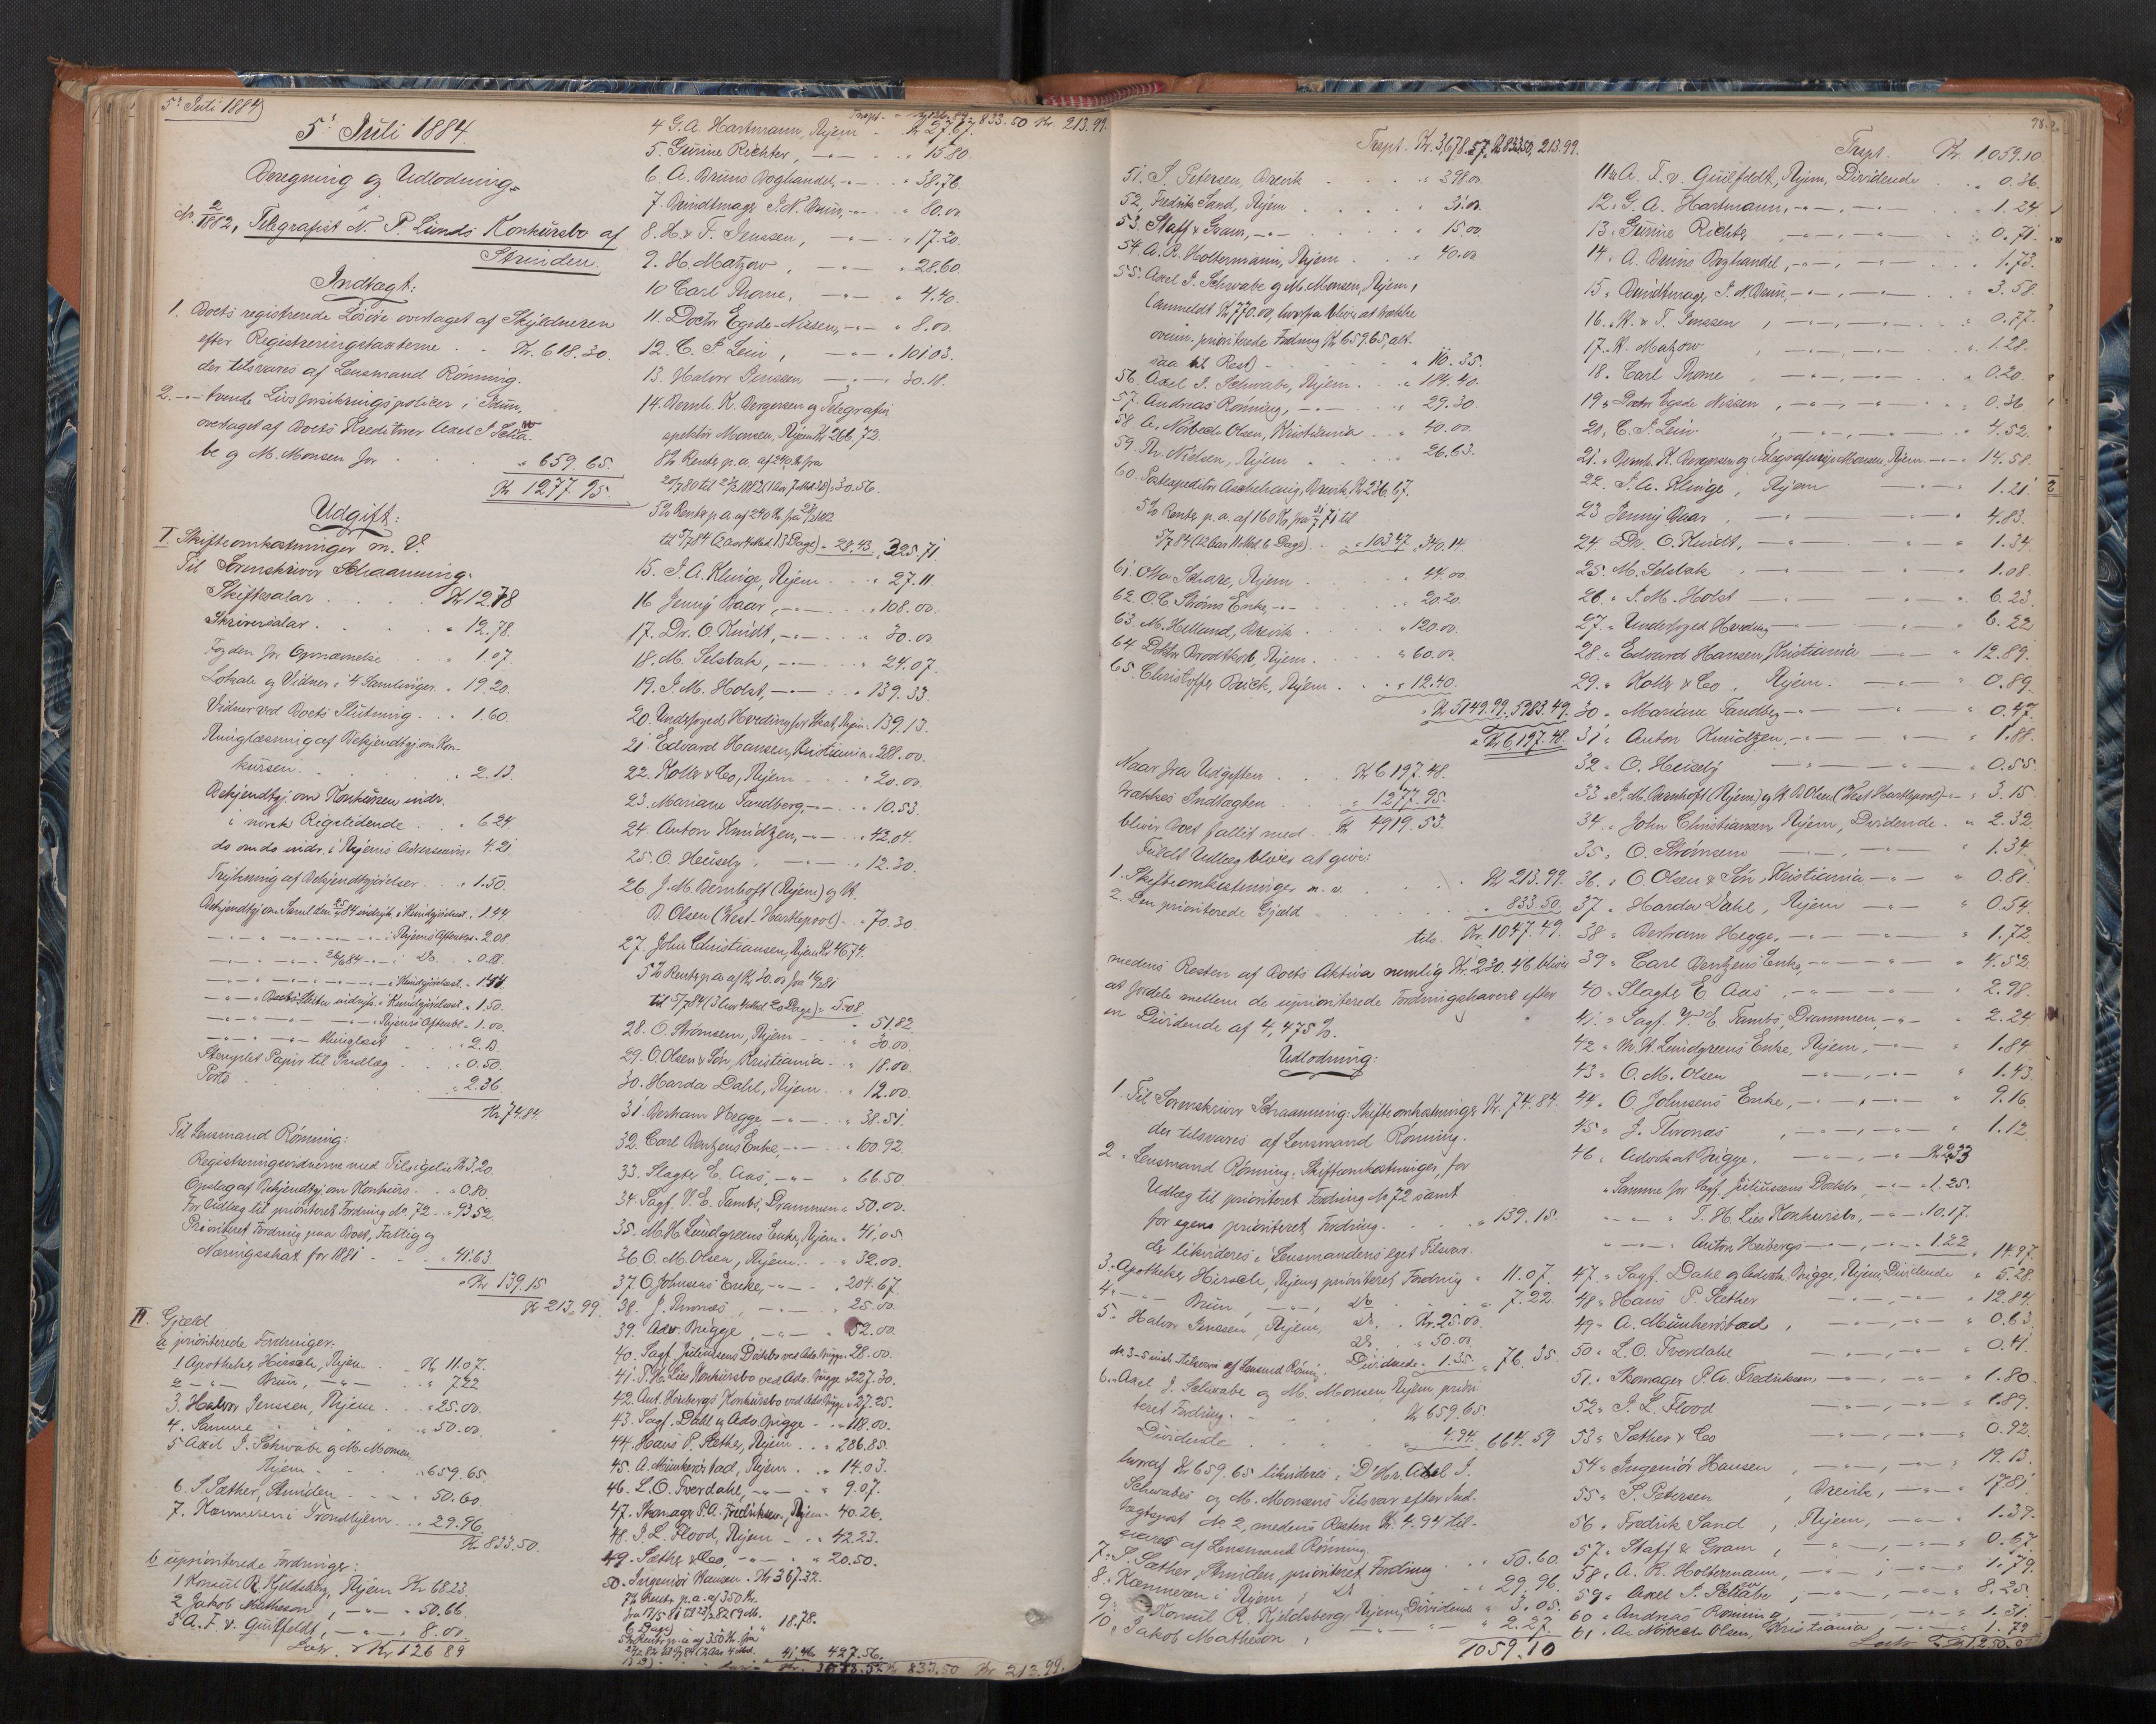 5' Juli 1884
5' Juli 1884.
Beregning og Udlodning
Nr. 2/1882, Telegrafist N. P. Lunds Konkursbo af
Strinden.
Indtægt:
1. Boets registrerede Løsøre overtaget af Skyldneren
efter Registreringstaxterne . . Kr. 618.30.
der tilsvares af Lensmand Rönning.
2. -"- tvende Livsforsikringspolicer i Idun,
overtaget af Boets Kreditorer Axel J. Schwa-
be og M. Monsen for . . " 659.65.
Kr 1277.95.
Udgift:
I. Skifteomkostninger m. V.
Til Sorenskriver Schaanning.
Skiftesalær . . . Kr 12.78
Skriversalær . . . " 12.78.
Fogden for Opnævnelse . . " 1.07.
Lokale og Vidner i 4 Samlinger . " 19.20.
Vidner ved Boets Slutning . . " 1.60.
Thinglæsning af Bekjendtgj. om Kon-
kursen . . . " 2.13.
Bekjendtgj. om Konkursen indr.
i norsk Rigstidende . . " 6.24.
do om do indr. i Thjems Adresseavis " 4.21.
Trykning af Bekjendtgjörelser . . " 1.50.
Bekjendtgj om Saml. den 25/ 84 indryk. i Kundgjörelsest. " 1.44
-"- -"- -"- i Thjems Aftenbl. " 2.08.
-"- -"- 26/6 84 -"- i Do. . " 0.88.
-"- -"- -"- i Kundgjörelsest. " 1.44.
-"- Boets Slutn. indryk. i Kundgjörelsest. " 1.50.
-"- -"- -"- Thjems Aftenbl. " 1.00.
-"- -"- thinglæst . . " 2.13.
Stemplet Papir til Indlæg . . " 0.50.
Porto . . . " 2.36
Kr. 74.84
Til Lensmand Rönning:
Registreringsvidnerne med Tilsigelse Kr 3.20
Opslag af Bekjendtgj om Konkurs . " 0.80.
For Udlæg til prioriteret Fordring No 72 . " 93.52
Prioriteret Fordring paa Boet, Fattig og
Næringsskat for 1881 . . " 41.63
" Kr 139.15
Kr 213.99.
II. Gjæld
a prioriterede Fordringer.
1 Apotheker Hirsch, Thjem . . Kr 11.07.
2 -"- Bruun, -"- . . " 7.22
3. Halvor Jenssen, Thjem . . " 25.00.
4. Samme . . " 50.00.
5 Axel J. Schwabe og M. Monsen
Thjem . . " 659.65.
6. S. Sæther, Strinden . . " 50.60.
7. Kæmneren i Trondhjem . . " 29.96.
Kr 833.50.
b uprioriterede Fordringer:
1 Konsul R. Kjeldsberg, Thjem Kr 68.23.
2 Jakob Matheson, -"- . " 50.66.
3 A. F. v. Gülfeldt, -"- . " 8.00.
Latr. Kr 126 89
Trspt. Kr 126.89 833.50 Kr. 213.99.
4 G. A. Hartmann, Thjem . Kr 27.67.
5. Gurine Richter, -"- . " 15.80.
6. A. Bruns Boghandel, -"- . " 38.76.
7. Bundtmager J. N. Bruun, -"- . " 80.00.
8. H. & F. Jenssen, -"- . " 17.20.
9. H. Matzow, -"- . " 28.60.
10 Carl Thome, -"- " 4.40.
11. Doctor Egede-Nissen, -"- " 8.00.
12. C. J. Lein, -"- . " 101.03.
13. Halvor Jenssen -"- " 30.18.
14. Bernh. K. Bergersen og Telegrafin-
spektör Monsen, Thjem Kr 266.72.
8% Rente p. a. af 240 Kr fra
til 1882 (1 Aar 7 Md ) " 30.56.
5% Rente p. a. af 240 Kr. fra 1882
til 5/7 84 (2 Aar 4 Md 13 Dage) " 28.43. " 325.71
15. J. A. Klinge, Thjem . . " 27.11
16 Jenny Baar, -"- . . " 108.00.
17. Dr. O. Kindt, -"- . " 30.00
18. M. Selsbak, -"- . " 24.07.
19. J. M. Holst, -"- . " 139.33.
20. Underfoged Hveding for Skat, Thjem . 139.13.
21 Edvard Hansen, Kristiania " 288.00.
22. Koller & Co, Thjem . . " 20.00.
23. Mariane Tandberg, -"- . " 10.53.
24. Anton Knudtzen, -"- . " 42.04.
25. O. Heisely, -"- . " 12.30.
26. J. M. Bernhoft (Thjem) og H.
B. Olsen (West-Hartlepool) . " 70.30.
27. John Christiansen, Thjem Kr 46.74.
5% Rente p. a. af Kr 30.00 fra
til 5/7 84 (3 Aar 4 Md 20 Dage) " 5.08.
" 51.82.
28. O. Strömsem, Thjem . . " 30.00.
29. O. Olsen & Sön, Kristiania . " 18.00.
30. Harda Dahl, Thjem . . " 12.00.
31. Bertram Hegge, -"- . " 38.51.
32. Carl Bentzens Enke, -"- . " 100.92.
33. Slagter E. Aas, -"- " 66.50.
34 Sagf. V. E. Tambs, Drammen " 50.00.
35. M. H. Lundgreens Enke, Thjem . " 41.05.
36 O. M. Olsen, Thjem . . " 32.00.
37. O. Johnsens Enke, -"- . " 204.67.
38. J. Thronæs, -"- . " 25.00.
39. Adv. Brigge, -"- . " 52.00.
40. Sagf. Juliussens Dödsbo ved Adv. Brigge . 28.00.
41. T. H. Lies Konkursbo ved Adv. Brigge " 227.30.
42. Ant. Heibergs Konkursbo ved Adv Brigge " 27.25.
43. Sagf. Dahl & Adv. Brigge . . " 118.00.
44. Hans P. Sæther, Thjem . . " 286.85.
45. A. Munkerstad, Thjem . . " 14.03.
46. L. O. Fverdahl, -"- . " 9.07.
47. Skomager P. A. Fredriksen, Thjem " 40.26.
48. J. L. Flood, Thjem . . " 42.23.
49. Sæther & Co, -"- . " 20.50.
50. Ingeniör Hansen . Kr 367.32.
7% Rente p. a. af 350 Kr.
fra
6 Dage) . . " 18.78.
5% Rente p. a. af 350 Kr. fra
" 41.46 427.56.
833.50 Kr. 213.99.
98.
Trspt. Kr. 3,678.57, Kr 833.50, 213.99.
51. S. Petersen, Brevik . . . " 398.00.
52, Fredrik Sand, Thjem . . " 31.00.
53. Staff & Gram, -"- . . " 15.00
54. A. R. Holtermann, Thjem . . " 40.00
55. Axel J. Schwabe og M. Monsen, Thjem,
(anmeldt Kr 770.00, hvorfra bliver at trække
ovenn. prioriterede Fordring Kr 659.65, alt-
saa til Rest) . . " 110.35.
56. Axel J. Schwabe, Thjem . . " 184.40.
57. Andreas Rönning, -"- . . " 29.30.
58. A. Norbech Olsen, Kristiania . " 40.00.
59. Th. Nielsen, Thjem . . " 26.63.
60. Postexpeditör Aschehoug, Brevik, Kr 236.67.
5% Rente p. a. af 160 Kr. fra 71 til
5/7 84 (12 Aar 11 Md. 6 Dage) . " 103.47 " 340.14
61. Otto Schare, Thjem . . " 44.00.
62. O. C. Ströms Enke, -"- . . " 20.20.
63. M. Helland, Brevik . . " 120.00.
64 Doktor Brodtkorb, Thjem . . " 60.00.
65. Christoffer Brick, Thjem . . " 12.40.
Kr. 5149.99. 5983.49.
Kr 6,197.48.
Naar fra Udgiften . . . Kr 6197.48.
trækkes Indtægten . . . " 1277.95.
bliver Boet fallit med . Kr 4919.53.
Fuldt Udlæg bliver at give:
1. Skifteomkostninger m. v. . . . Kr 213.99.
2. Den prioriterede Gjæld . . . " 833.50.
tils. Kr. 1047.49.
medens Resten af Boets Aktiva nemlig Kr. 230.46 bliver
at fordele mellem de uprioriterede Fordringshavere efter
en Dividende af 4,475 %.
Udlodning:
1. Til Sorenskriver Schaanning: Skifteomkostninger Kr. 74.84.
der tilsvares af Lensmand Rönning.
2 " Lensmand Rönning: Skifteomkostninger, for
Udlæg til prioriteret Fordring No 72 samt
for egen prioriteret Fordring . . . " 139.15.
der likvideres i Lensmandens eget Tilsvar.
3. Apotheker Hirsch, Thjem, prioriteret Fordring " 11.07.
4. -"- Bruun, -"-, Do . . " 7.22.
5. Halvor Jenssen, Thjem, Do. . Kr. 25.00.
Do. . " 50.00
No 3-5 incl. tilsvares af Lensmd Rönning. Dividende . 1.35 " 76.35.
6. Axel J. Schwabe og M. Monsen, Thjem, priori-
teret Fordring . . Kr 659.65
Dividende . . . " 4.94. 664.59
hvoraf Kr 659.65 likvideres i D'Hr. Axel J.
Schwabes og M. Monsens Tilsvar efter Ind-
tægtspost No 2, medens Resten Kr. 4.94 til-
svares af Lensmand Rönning.
7. S. Sæther, Strinden, prioriteret Fordring . . " 50.60.
8. Kæmneren i Thjem, Do . . " 29.96.
9. Konsul R. Kjeldsberg, Thjem, Dividende " 3.05.
10. Jakob Matheson, -"- -"- " 2.27.
1059.10
Trspt. Kr 1,059.10
11 " A. F. v. Gülfeldt, Thjem, Dividende . . " 0.36.
12. G. A. Hartmann, -"-, -"- . . " 1.24.
13. Gurine Richter, -"-, -"- . . " 0.71.
14. A. Bruns Boghandel, -"-, -"- . . " 1.73.
15. Bundtmager J. N. Bruun, -"-, -"- . . " 3.58.
16. H. & F. Jenssen, -"-, -"- . " 0.77.
17. H. Matzow, -"-, -"- . " 1.28.
18. Carl Thome, -"-, -"- . " 0.20.
19 " Doctor Egede Nissen, -"-, -"- . " 0.36.
20, C. J. Lein, -"-, -"- " 4.52.
21. " Bernh. K. Bergersen og Telegrafinsp. Monsen, Thjem -"- " 14.58.
22. J. A. Klinge, Thjem -"- " 1.21
23 Jenny Baar, -"- -"- " 4.83.
24. Dr. O. Kindt, -"- -"- " 1.34.
25. M. Selsbak, -"- -"- " 1.08.
26. J. M. Holst -"- -"- " 6.23.
27. " Underfoged Hveding -"- -"- " 6.22
28. " Edvard Hansen, Kristiania -"- " 12.89.
29. " Koller & Co, Thjem. -"- " 0.89.
30 " Mariane Tandberg -"- -"- " 0.47.
31 " Anton Knudtzen, -"- -"- " 1.88.
32 " O. Heisely -"- -"- " 0.55.
33 " J. M. Bernhoft (Thjem) og H. B. Olsen (West Hartlepool) -"- " 3.15.
34. " John Christiansen Thjem, Dividende . " 2.32.
35 " O. Strömsem -"-, -"- " 1.34.
36. " O. Olsen & Sön, Kristiania -"- " 0.81.
37 " Harda Dahl, Thjem -"- " 0.54.
38 " Bertram Hegge, -"- -"- " 1.72.
39 " Carl Bentzens Enke, -"- -"- " 4.52.
40 " Slagter E Aas, -"- -"- " 2.98.
41. " Sagf. V. E. Tambs, Drammen, -"- " 2.24
42 " M. H. Lundgreens Enke, Thjem, -"- " 1.84.
43 " O. M. Olsen -"-, -"- " 1.43.
44 " O. Johnsens Enke, -"-, -"- " 9.16.
45 " J. Thronæs, -"-, -"- " 1.12.
46 " Advokat Brigge, -"-, -"- Kr 2.33
" Samme for Sagf. Juliussens Dödsbo, -"- " 1.25.
-"- " T. H. Lies Konkursbo, -"- " 10.17.
-"- " Anton Heibergs -"-, -"- " 1.22 " 14.97.
47. " Sagf. Dahl og Advokat Brigge, Thjem, Dividende " 5.28.
48 " Hans P. Sæther -"-, -"- " 12.84.
49 " A. Munkerstad, -"-, -"- " 0.63.
50 " L. O. Fverdahl -"-, -"- " 0.41.
51. " Skomager P. A. Fredriksen, -"-, -"- " 1.80.
52 " J. L. Flood -"-, -"- " 1.89.
53 " Sæther & Co -"-, -"- " 0.92.
54 " Ingeniör Hansen, -"-, -"- " 19.13.
55 " S. Petersen, Brevik, -"- " 17.81.
56. " Fredrik Sand, Thjem, -"- " 1.39.
57 " Staff & Gram, -"-, -"- " 0.67.
58 " A. R. Holtermann, -"-, -"- " 1.79.
59 " Axel J. Schwabe, -"-, -"- " 8.25.
60 " Andreas Rönning, -"-, -"- " 1.31.
61 " A. Norbech Olsen, Kristiania, -"- " 1.79
Latr